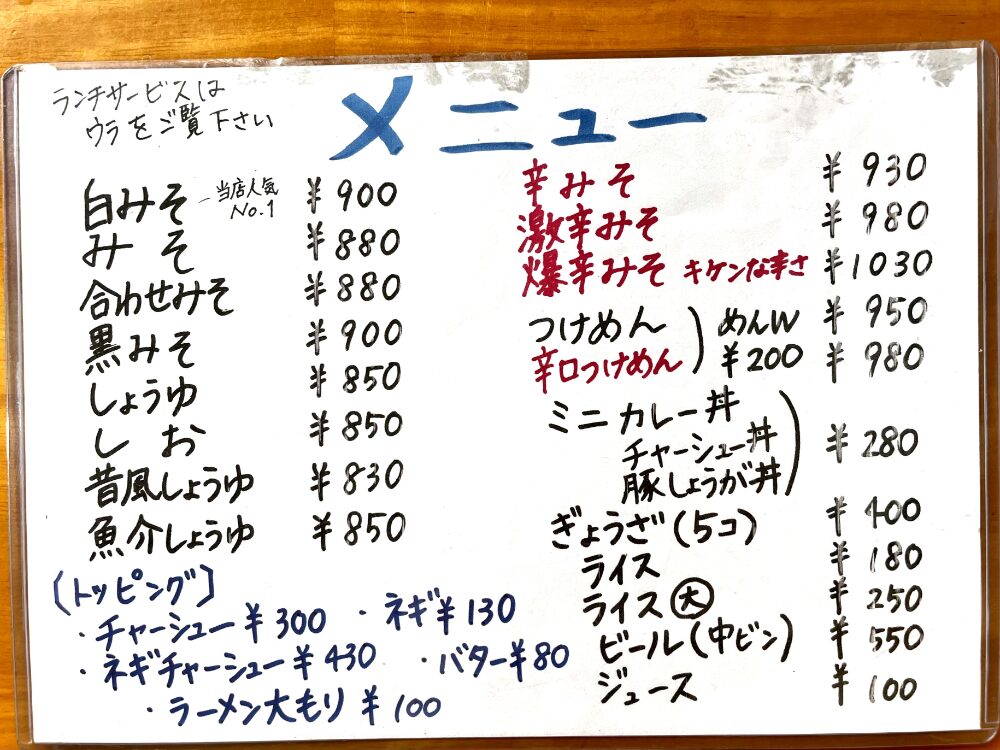 ランチサービスは
ウラをご覧下さい
メニュー
白みそ - 当店人気 No.1 ¥900
みそ ¥880
合わせみそ ¥880
黒みそ ¥900
しょうゆ ¥850
しお ¥850
昔風しょうゆ ¥830
魚介しょうゆ ¥850
辛みそ ¥930
激辛みそ ¥980
爆辛みそ キケンな辛さ ¥1030
つけめん めんW ¥950
辛口つけめん ¥200 ¥980
ミニ カレー丼
チャーシュー丼 ¥280
豚しょうが丼
ぎょうざ(5コ) ¥400
ライス ¥180
ライス(大) ¥250
ビール(中ビン) ¥550
ジュース ¥100
〔トッピング〕
・チャーシュー¥300 ・ネギ¥130
・ネギチャーシュー¥430 ・バター¥80
・ラーメン大もり ¥100